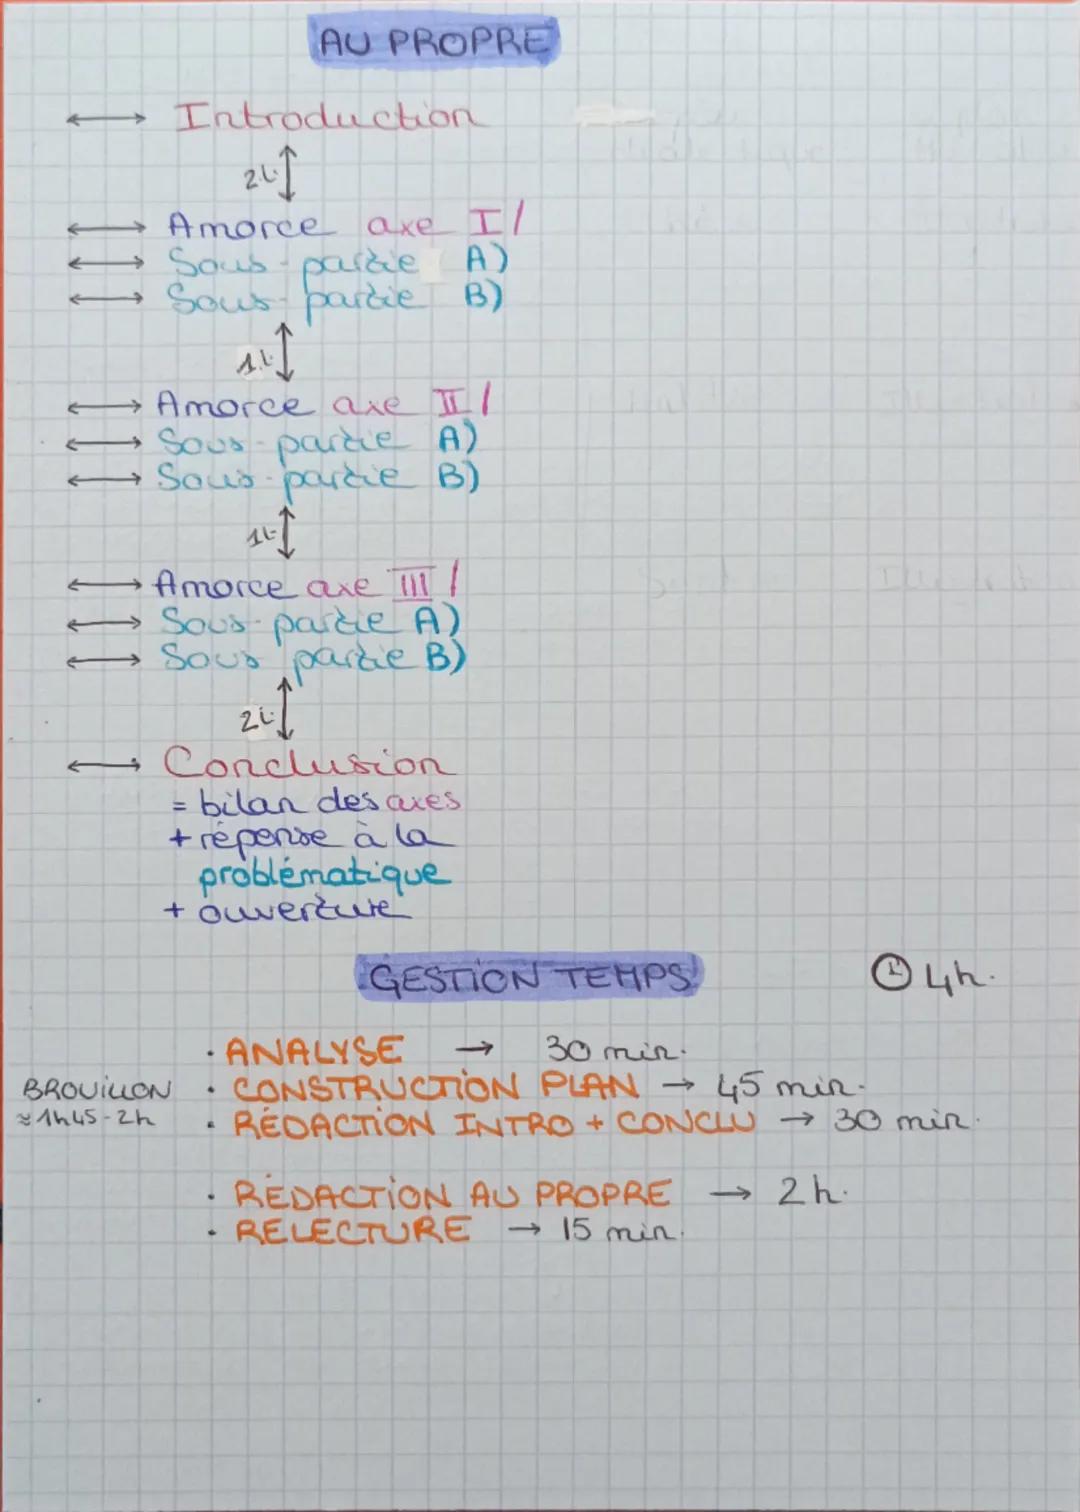 AU PROPRE
↔ Introduction
2l. ↕
↔ Amorce axe I/
↔ Sous-partie A)
↔ Sous-partie B)
1l. ↕
↔ Amorce axe II/
↔ Sous-partie A)
↔ Sous-partie B)
1l. ↕
↔ Amorce axe III/
↔ Sous-partie A)
↔ Sous partie B)
2l. ↕
↔ Conclusion
= bilan des axes
+ réponse à la
problématique
+ ouverture
GESTION TEMPS! 4h.
· ANALYSE → 30 min.
BROUILLON · CONSTRUCTION PLAN → 45 min.
≈ 1h45-2h · RÉDACTION INTRO + CONCLU → 30 min.
· RÉDACTION AU PROPRE → 2h.
· RELECTURE → 15 min.